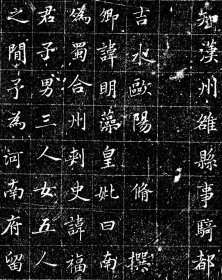 知漢州雒縣事騎都
吉水歐陽脩撰
卿諱明藻皇妣曰南
偽蜀合州刺史諱福
君子男三人女五人
之間予為河南府留